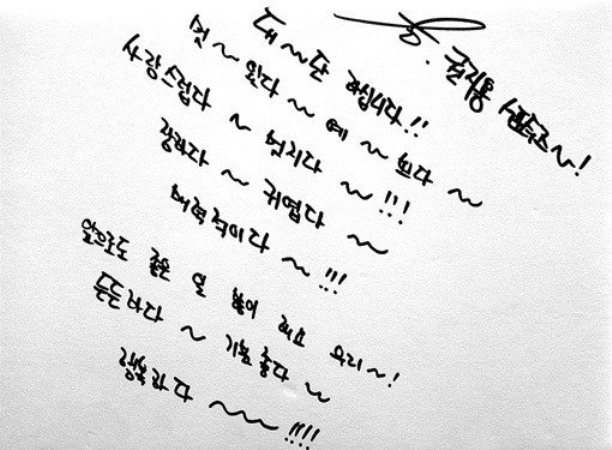 대~단 하십니다!!
멋~있다~ 예~쁘다~
사랑스럽다~ 멋지다~!!!
장하다~ 귀엽다~
매력적이다~!!!
앞으로도 좋은 일 많이 해요 우리~!
든든하다~ 기분 좋다~
행복하다~~!!!!